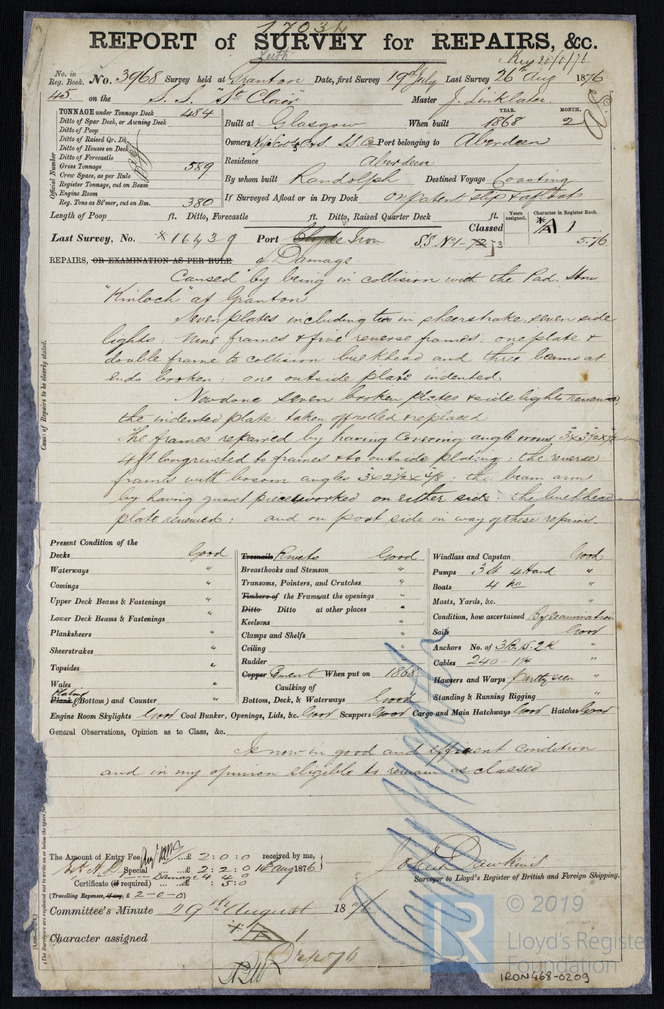 REPORT of SURVEY for REPAIRS, &c.
Leith
No. in Reg. Book. No. 3968 Survey held at Granton Date, first Survey 19th July Last Survey 26th Aug 1876
45 on the S.S. "St Clair" Master J. Linklater
TONNAGE under Tonnage Deck 484
Ditto of Spar Deck, or Awning Deck
Ditto of Poop
Ditto of Raised Qr. Dk
Ditto of Houses on Deck
Ditto of Forecastle
Gross Tonnage 589
Crew Space, as per Rule
Register Tonnage, cut on Beam
Engine Room
Reg. Tons as St'mer, cut on Bm. 380
Official Number
Built at Glasgow When built YEAR. 1868 MONTH. 2
Owners Port belonging to Aberdeen
Residence Aberdeen
By whom built Randolph Destined Voyage Coasting
If Surveyed Afloat or in Dry Dock on patent slip & afloat
Length of Poop ft. Ditto, Forecastle ft. Ditto, Raised Quarter Deck ft.
Classed Years assigned. Character in Register Book.
A 1
5.76
Last Survey, No. 16439 Port Clyde Iron
REPAIRS, OR EXAMINATION AS PER RULE of Damage
Caused by being in collision with the Pad. Stmr
"Kinloch" at Granton
Seven plates including two in sheerstrake, seven side
lights: nine frames & five reverse frames: one plate &
double frame to collision bulkhead and three beams at
ends broken: one outside plate indented.
Now done seven broken plates & side lights renewed
the indented plate taken off rolled & replaced
The frames repaired by having angle irons
4 ft long riveted to frames & to outside plating: the reverse
frames with bosom angles: the beam arms
by having gusset pieces worked on either side: the bulkhead
plate renewed: and on port side in way of these repairs.
Cause of Repairs to be clearly stated.
Present Condition of the
Decks Good
Waterways "
Comings "
Upper Deck Beams & Fastenings "
Lower Deck Beams & Fastenings "
Planksheers "
Sheerstrakes "
Topsides "
Wales "
Plank (Bottom) and Counter "
Treenails Rivets Good
Breasthooks and Stemson "
Transoms, Pointers, and Crutches "
Timbers of the Frames at the openings "
Ditto Ditto at other places "
Keelsons "
Clamps and Shelfs "
Ceiling "
Rudder "
Copper When put on 1868
Caulking of
Bottom, Deck, & Waterways Good
Windlass and Capstan Good
Pumps 3 St 4 Hand "
Boats 4 "
Masts, Yards, &c. "
Condition, how ascertained By examination
Sails Good
Anchors No. of 3B. 1S. 2K "
Cables 240 "
Hawsers and Warps partly seen "
Standing & Running Rigging "
Engine Room Skylights Good Coal Bunker, Openings, Lids, &c. Good Scuppers Good Cargo and Main Hatchways Good Hatches Good
General Observations, Opinion as to Class, &c.
Is now in good and efficient condition
and in my opinion eligible to remain as classed
The Amount of Entry Fee £ 2 : 0 : 0 received by me,
Special £ 2 : 2 : 0 Aug 1876
Damage 4 4 0
Certificate (if required) £ : 5 : 0
(Travelling Expenses, if any, £ 2-0-0)
Surveyor to Lloyd's Register of British and Foreign Shipping.
Committee's Minute 29th August 1876
Character assigned A 1
© 2019
Lloyd's Register
Foundation
IRON468-0209